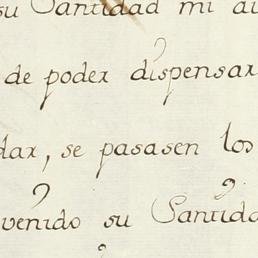 su Santidad mi au
de poder dispensar
dar, se pasasen los
venido su Santida